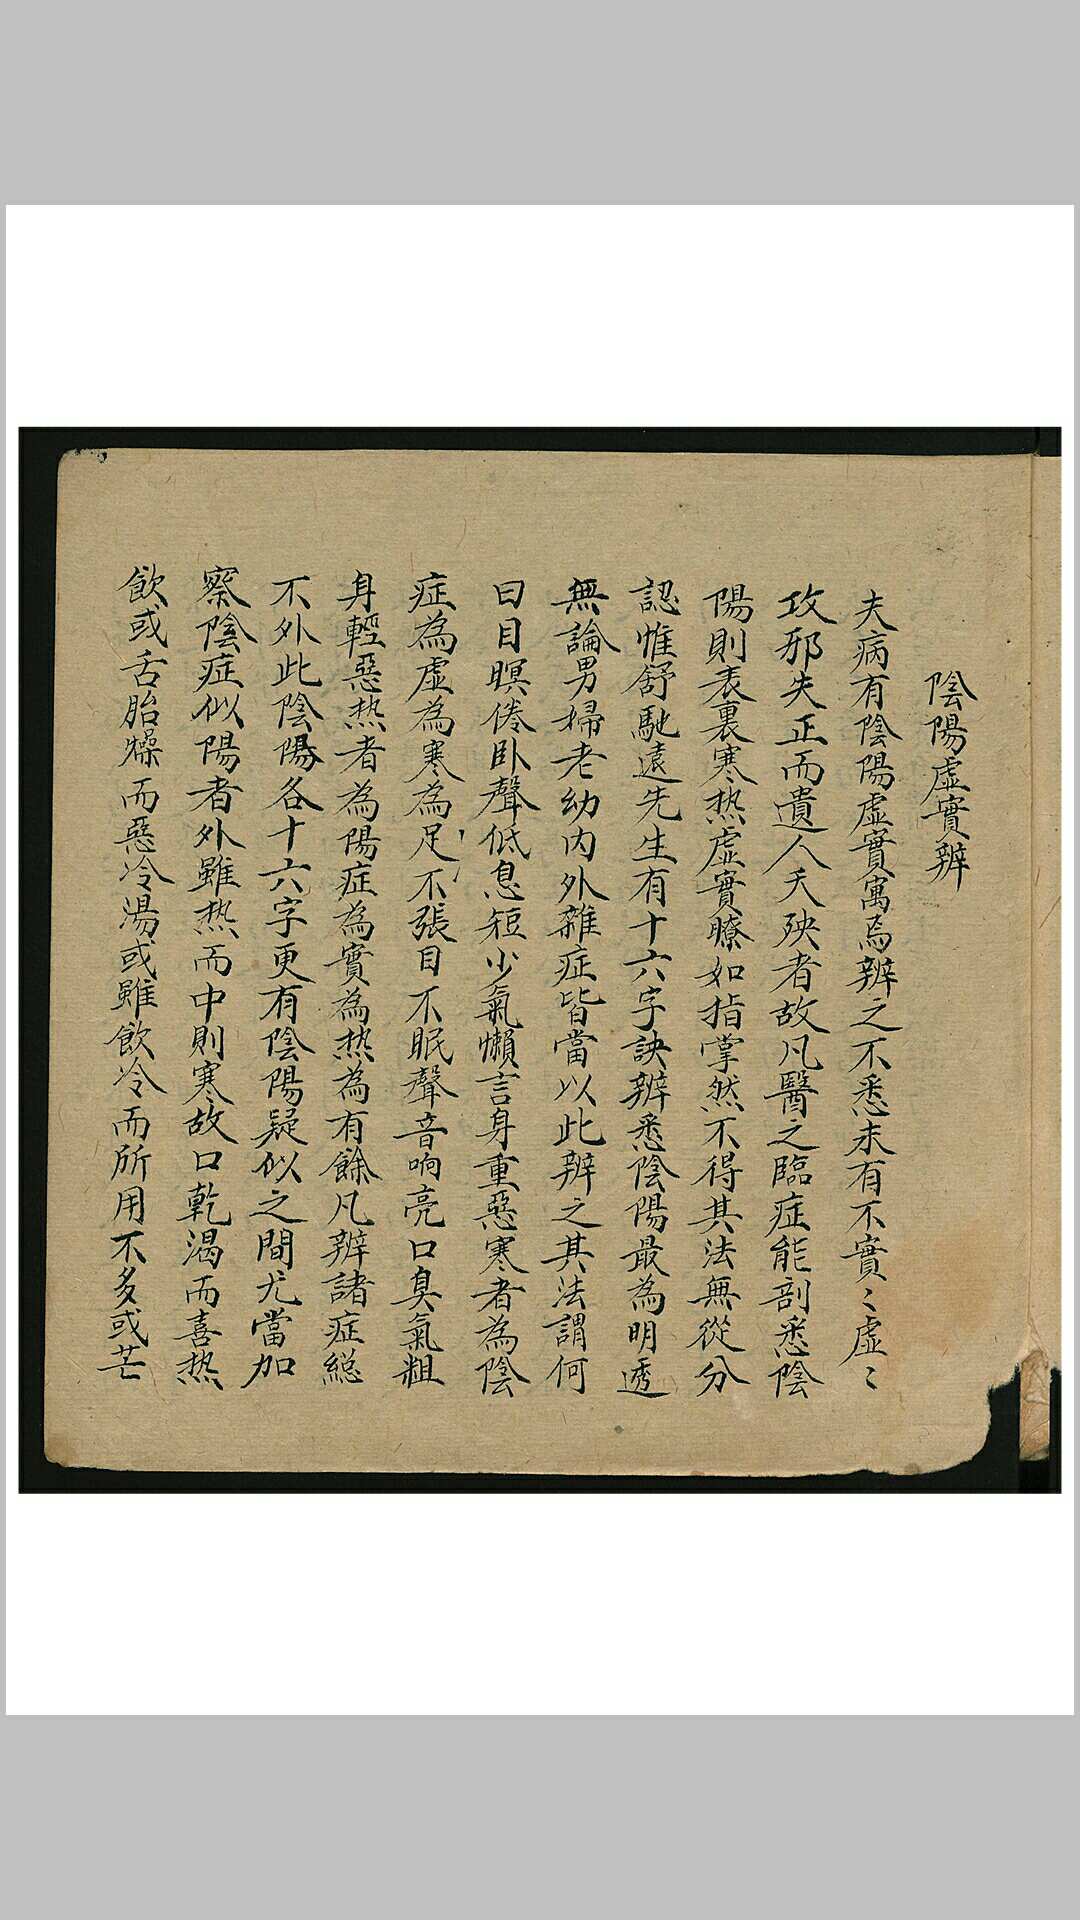 陰陽虛實辨
夫病有陰陽虛實寓焉辨之不悉未有不實〻虛〻
攻邪失正而遺人夭殃者故凡醫之臨症能剖悉陰
陽則表裏寒热虛實瞭如指掌然不得其法無從分
認惟舒馳遠先生有十六字訣辨悉陰陽最為明透
無論男婦老幼內外雜症皆當以此辨之其法謂何
曰目瞑倦卧聲低息短少氣懶言身重惡寒者為陰
症為虛為寒為不足張目不眠聲音响亮口臭氣粗
身輕惡热者為陽症為實為热為有餘凡辨諸症総
不外此陰陽各十六字更有陰陽疑似之間尤當加
察陰症似陽者外雖热而中則寒故口乾渴而喜热
飲或舌胎燥而惡冷湯或雖飲冷而所用不多或芒